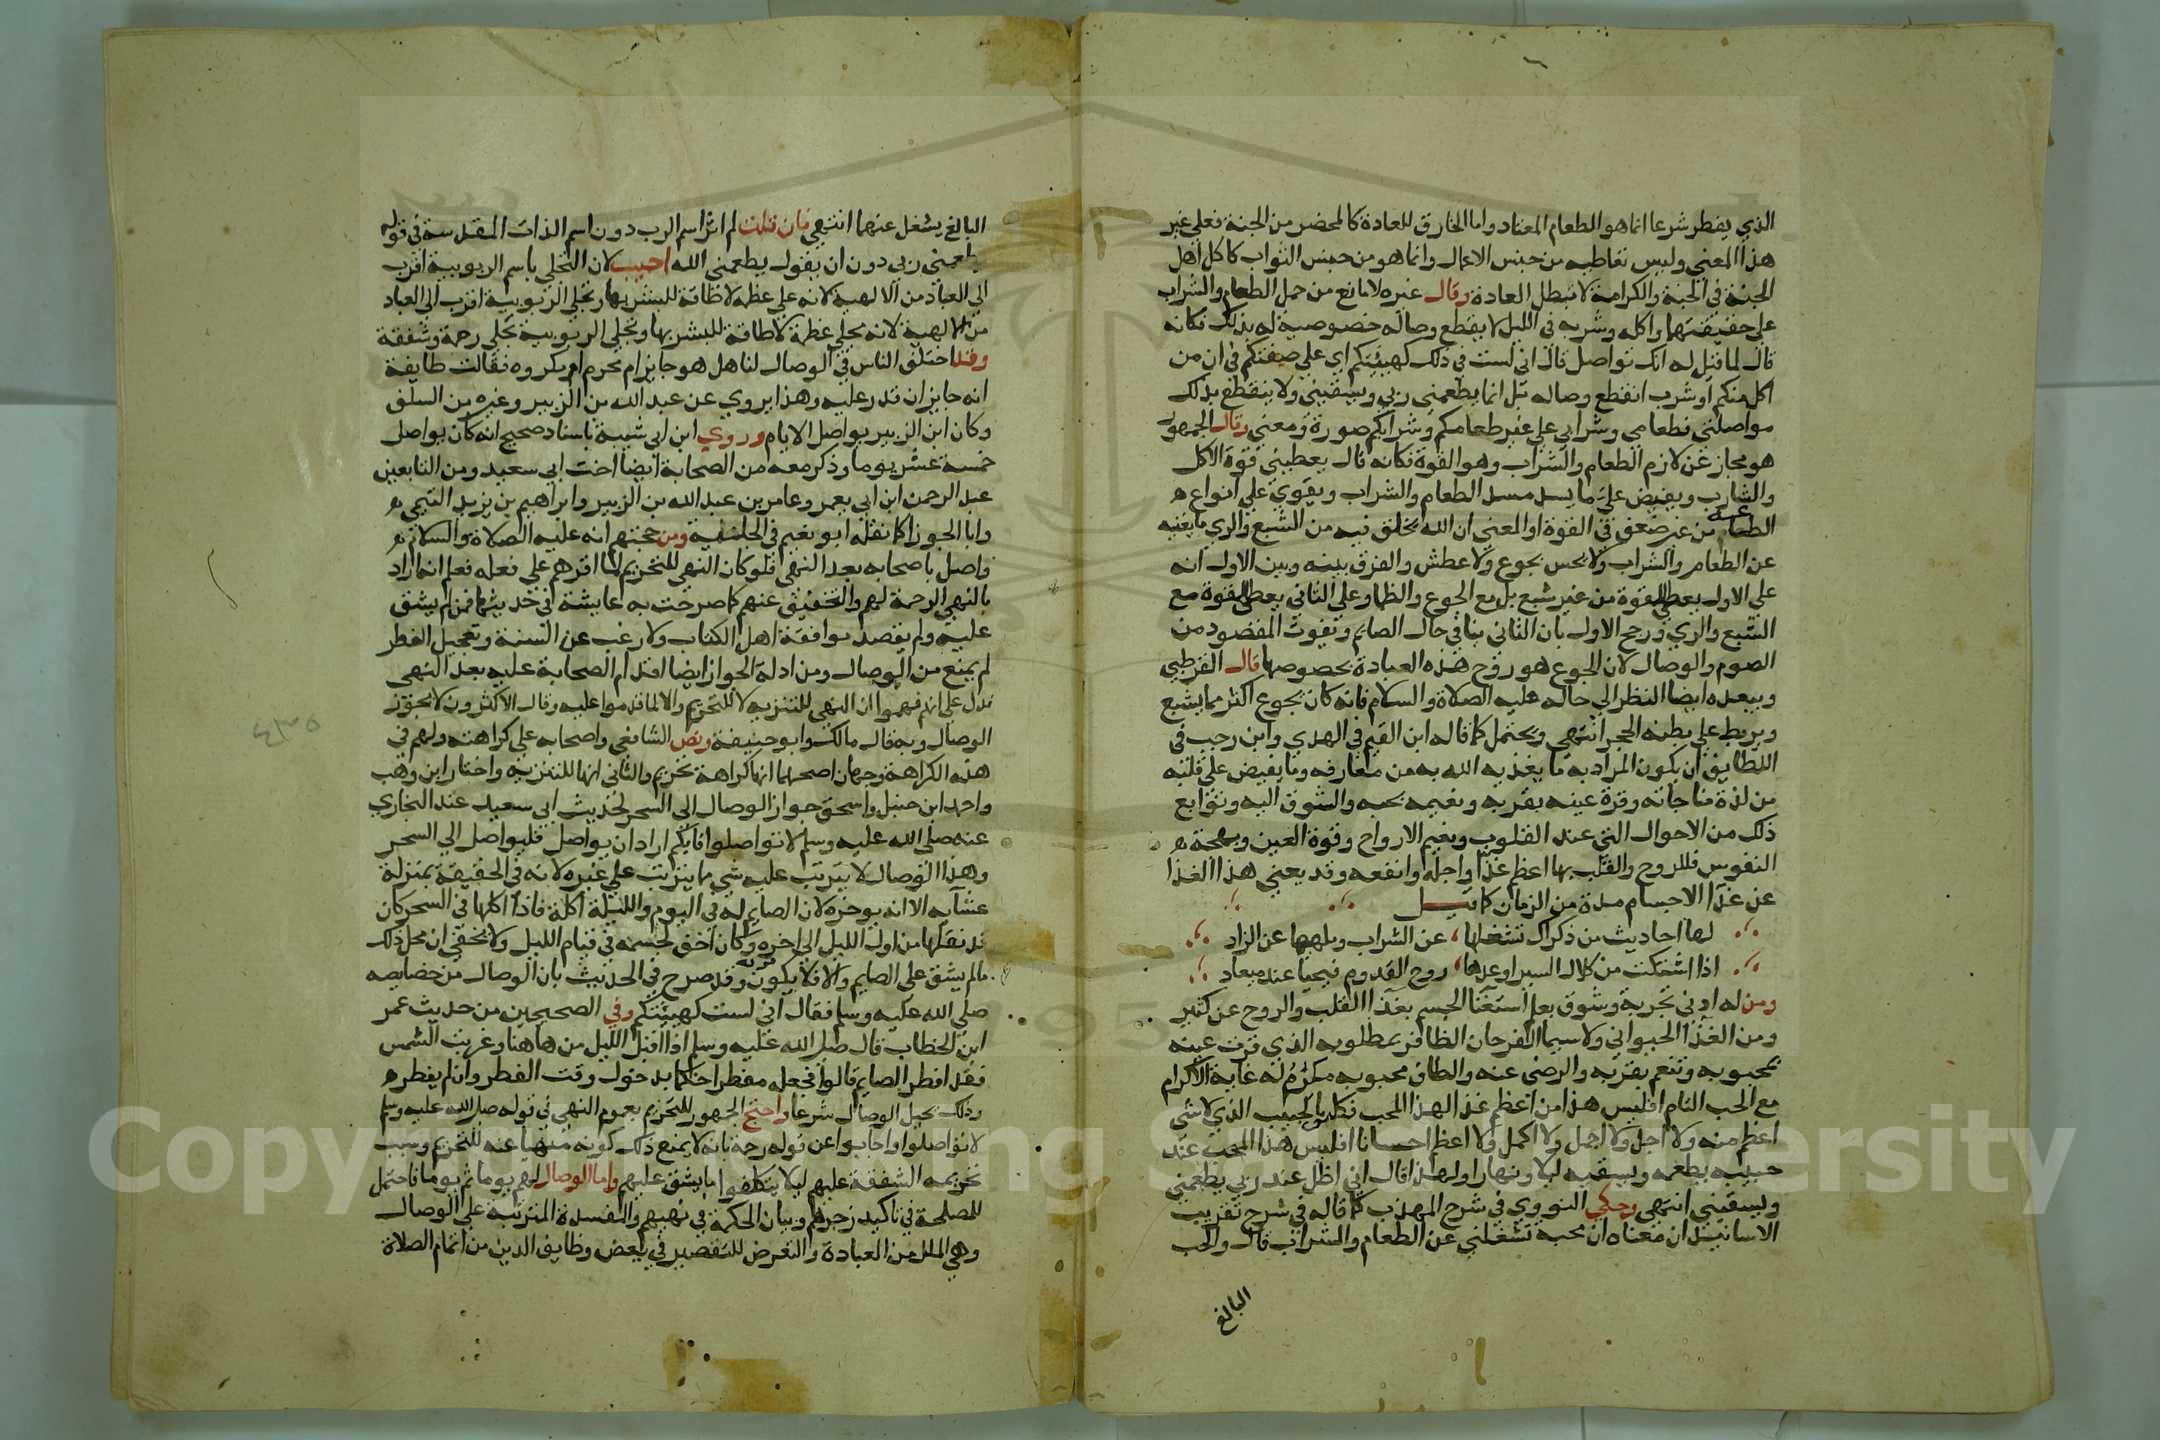 الذي يفطر شرعا انما هو الطعام المعتاد واما الخارق للعادة كالمحضر من الجنة فعلي غير
هذا المعني وليس تعاطيه من جنس الاعمال وانما هو من جنس الثواب كاكل اهل
الجنة في الجنة والكرامة لا تبطل العادة وقال غيره لا مانع من حمل الطعام والشراب
علي حقيقتهما واكله وشربه في الليل لا يقطع وصاله خصوصية له بذلك فكانه
قال لما قيل له انك تواصل قال اني لست في ذلك كهيئتكم اي علي صفتكم في ان من
اكل منكم او شرب انقطع وصاله بل انما يطعمني ربي ويسقيني ولا ينقطع بذلك
مواصلتي فطعامي وشرابي علي غير طعامكم وشرابكم صورة ومعني وقال الجمهور
هو مجاز عن لازم الطعام والشراب وهو القوة فكانه قال يعطيني قوة الاكل
والشارب ويفيض علي ما يسد مسد الطعام والشراب ويقوي علي انواع
الطاعة من غير ضعف في القوة او المعني ان الله يخلق فيه من الشبع والري ما يغنيه
عن الطعام والشراب ولا يحس بجوع ولا عطش والفرق بينه وبين الاول انه
علي الاول يعطي القوة من غير شبع بل مع الجوع والظما وعلي الثاني يعطي القوة مع
الشبع والري ورجح الاول بان الثاني ينافي حال الصائم ويفوت المقصود من
الصوم والوصال لان الجوع هو روح هذه العبادة بخصوصها قال القرطبي
ويبعده ايضا النظر الي حاله عليه الصلاة والسلام فانه كان يجوع اكثر مما يشبع
ويربط علي بطنه الحجر انتهي ويحتمل كما قاله ابن القيم في الهدي وابن رجب في
اللطايف ان يكون المراد به ما يغذيه الله به من معارفه وما يفيض علي قلبه
من لذة مناجاته وقرة عينه بقربه ونعيمه بحبه والشوق اليه وتوابع
ذلك من الاحوال التي عند القلوب ونعيم الارواح وقرة العين وبهجة
النفوس فللروح والقلب بها اعظم غذا واجله وانفعه وقد يغني هذا الغذا
عن غذا الاجسام مدة من الزمان كما قيل
لها احاديث من ذكراك تشغلها عن الشراب وتلهيها عن الزاد
اذا اشتكت من كلال السير اوعدها روح القدوم فيحيا عند ميعاد
ومن له ادني تجربة وشوق يعلم استغنا الجسم بغذا القلب والروح عن كثير
ومن الغذا الحيواني ولا سيما الفرحان الظافر بمطلوبه الذي قرت عينه
بمحبوبه وتنعم بقربه والرضي عنه والطاف محبوبه مكرم له غاية الاكرام
مع الحب التام افليس هذا من اعظم غذا لهذا المحب فكيف بالحبيب الذي لا شي
اعظم منه ولا اجل ولا اجمل ولا اكمل ولا اعظم احسانا افليس هذا المحب عند
حبيبه يطعمه ويسقيه ليلا ونهارا ولهذا قال اني اظل عند ربي يطعمني
ويسقيني انتهي وحكي النووي في شرح المهذب كما قاله في شرح تقريب
الاسانيد ان معناه ان محبة تشغلني عن الطعام والشراب قال والحب
البالغ
البالغ يشغل عنهما انتهي فان قلت لم اثر اسم الرب دون اسم الذات المقدسة في قوله
يطعمني ربي دون ان يقول يطعمني الله اجيب لان التجلي باسم الربوبية اقرب
الي العباد من الالهية لانه علي عظمه لا طاقة للبشر بها وتجلي الربوبية اقرب الي العباد
من الالهية لانه تجلي عظمة لا طاقة للبشر بها وتجلي الربوبية تجلي رحمة وشفقة
وقد اختلف الناس في الوصال لنا هل هو جايز ام محرم ام مكروه فقالت طايفة
انه جايز ان قدر عليه وهذا يروي عن عبد الله بن الزبير وغيره من السلف
وكان ابن الزبير يواصل الايام وروي ابن ابي شيبة باسناد صحيح انه كان يواصل
خمسة عشر يوما وذكر معه من الصحابة ايضا اخت ابي سعيد ومن التابعين
عبد الرحمن ابن ابي يعمر وعامر بن عبد الله بن الزبير وابراهيم بن يزيد التيمي
وابا الجوزا كما نقله ابو نعيم في الحلية ومن حجتهم انه عليه الصلاة والسلام
واصل باصحابه بعد النهي فلو كان النهي للتحريم لما اقرهم علي فعله فعلم انه اراد
بالنهي الرحمة لهم والتخفيف عنهم كما صرحت به عايشة في حديثها فمن لم يشق
عليه ولم يقصد موافقة اهل الكتاب ولا رغب عن السنة وتعجيل الفطر
لم يمنع من الوصال ومن ادلة الجواز ايضا اقدام الصحابة عليه بعد النهي
فدل علي انهم فهموا ان النهي للتنزيه لا للتحريم والا لما قدموا عليه وقال الاكثرون لا يجوز
الوصال وبه قال مالك وابو حنيفة ونص الشافعي واصحابه علي كراهته ولهم في
هذه الكراهة وجهان اصحهما انها كراهة تحريم والثاني انها للتنزيه واختار ابن وهب
واحمد ابن حنبل واسحق جواز الوصال الي السحر لحديث ابي سعيد عند البخاري
عنه صلي الله عليه وسلم لا تواصلوا فايكم اراد ان يواصل فليواصل الي السحر
وهذا الوصال لا يترتب عليه شي مما يترتب علي غيره لانه في الحقيقة بمنزلة
عشآيه الا انه يوخره لان الصايم له في اليوم والليلة اكلة فاذا اكلها في السحر كان
قد نقلها من اول الليل الي اخره وكان اخف لجسمه في قيام الليل ولا يخفي ان محل ذلك
ما لم يشق علي الصايم والا فلا يكون قربه وقد صرح في الحديث بان الوصال من خصايصه
صلي الله عليه وسلم فقال اني لست كهيئتكم وفي الصحيحين من حديث عمر
ابن الخطاب قال صلي الله عليه وسلم اذا اقبل الليل من هاهنا وغربت الشمس
فقد افطر الصايم قالوا فجعله مفطرا حكما بدخول وقت الفطر وان لم يفطر
وذلك يحيل الوصال شرعا واحتج الجمهور للتحريم بعموم النهي في قوله صلي الله عليه وسلم
لا تواصلوا واجابوا عن قوله رحمة بانه لا يمنع ذلك كونه منهيا عنه للتحريم وسبب
تحريمه الشفقة عليهم ليلا يتكلفوا ما يشق عليهم واما الوصال لهم يوما ثم يوما فاحتمل
للمصلحة في تاكيد زجرهم وبيان الحكمة في نهيهم والمفسدة المترتبة علي الوصال
وهي الملل من العبادة والتعرض للتقصير في بعض وظايف الدين من اتمام الصلاة
٤٣٥
Copyright © King Saud University